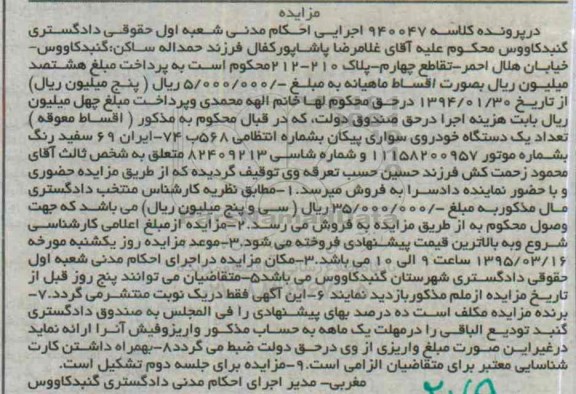 مزایده
درپرونده کلاسه ۹۴۰۰۴۷ اجرایی احکام مدنی شعبه اول حقوقی دادگستری
گنبدکاووس محکوم علیه آقای غلامرضا پاشاپورکفال فرزند حمداله ساکن:گنبدکاووس-
خیابان هلال احمر-تقاطع چهارم-پلاک ۲۱۰-۲۱۲محکوم است به پرداخت مبلغ هشتصد
میلیون ریال بصورت اقساط ماهیانه به مبلغ -/۵/۰۰۰/۰۰۰ ریال ( پنج میلیون ریال)
از تاریخ ۱۳۹۴/۰۱/۳۰ درحق محکوم لها خانم الهه محمدی وپرداخت مبلغ چهل میلیون
ریال بابت هزینه اجرا درحق صندوق دولت، که در قبال محکوم به مذکور ( اقساط معوقه )
تعداد یک دستگاه خودروی سواری پیکان بشماره انتظامی ۵۶۸ب ۷۴-ایران ۶۹ سفید رنگ
بشماره موتور ۱۱۱۵۸۲۰۰۹۵۷ و شماره شاسی ۸۲۴۰۹۲۱۳ متعلق به شخص ثالث آقای
محمود زحمت کش فرزند حسین حسب تعرفه وی توقیف گردیده که از طریق مزایده حضوری
و با حضور نماینده دادسرا به فروش میرسد.۱-مطابق نظریه کارشناس منتخب دادگستری
مال مذکوربه مبلغ -/۳۵/۰۰۰/۰۰۰ریال (سی و پنج میلیون ریال) می باشد که جهت
وصول محکوم به از طریق مزایده به فروش می رسد.۲-مزایده ازمبلغ اعلامی کارشناسی
شروع وبه بالاترین قیمت پیشنهادی فروخته می شود.۳-موعد مزایده روز یکشنبه مورخه
۱۳۹۵/۰۳/۱۶ ساعت ۹ الی ۱۰ می باشد.۳-مکان مزایده دراجرای احکام مدنی شعبه اول
حقوقی دادگستری شهرستان گنبدکاووس می باشد۵-متقاضیان می توانند پنج روز قبل از
تاریخ مزایده ازملم مذکوربازدید نمایند ۶-این آگهی فقط دریک نوبت منتشرمی گردد.۷-
برنده مزایده مکلف است ده درصد بهای پیشنهادی را فی المجلس به صندوق دادگستری
گنبد تودیع الباقی را درمهلت یک ماهه به حساب مذکور واریزوفیش آنرا ارائه نماید
درغیراین صورت مبلغ واریزی از وی درحق دولت ضبط می گردد۸-بهمراه داشتن کارت
شناسایی معتبر برای متقاضیان الزامی است.۹-مزایده برای جلسه دوم تشکیل است.
مغربی- مدیر اجرای احکام مدنی دادگستری گنبدکاووس